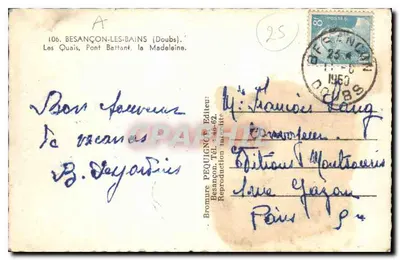 A
25
106. BESANÇON-LES-BAINS (Doubs).
Les Quais, Pont Battant, la Madeleine.
8F
BESANÇON
1950
DOUBS
Bon souvenir
de vacances
B. Desjardins
Bromure PEQUIGNOT Editeur
Besançon. Tél.
Reproduction interdite
Mr François Lang
Editions Montsouris
1 rue Gazan
Paris